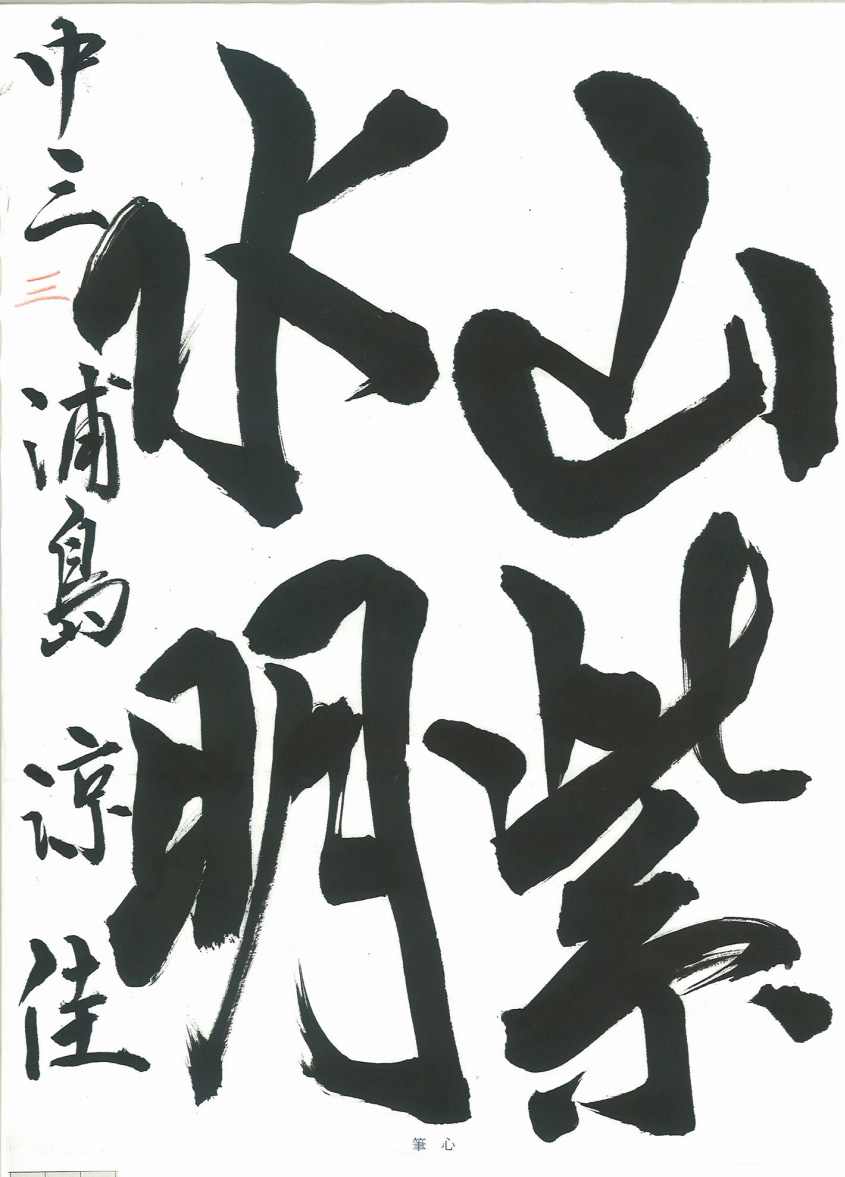 山紫
水明
中三 三 浦島 涼佳
筆心